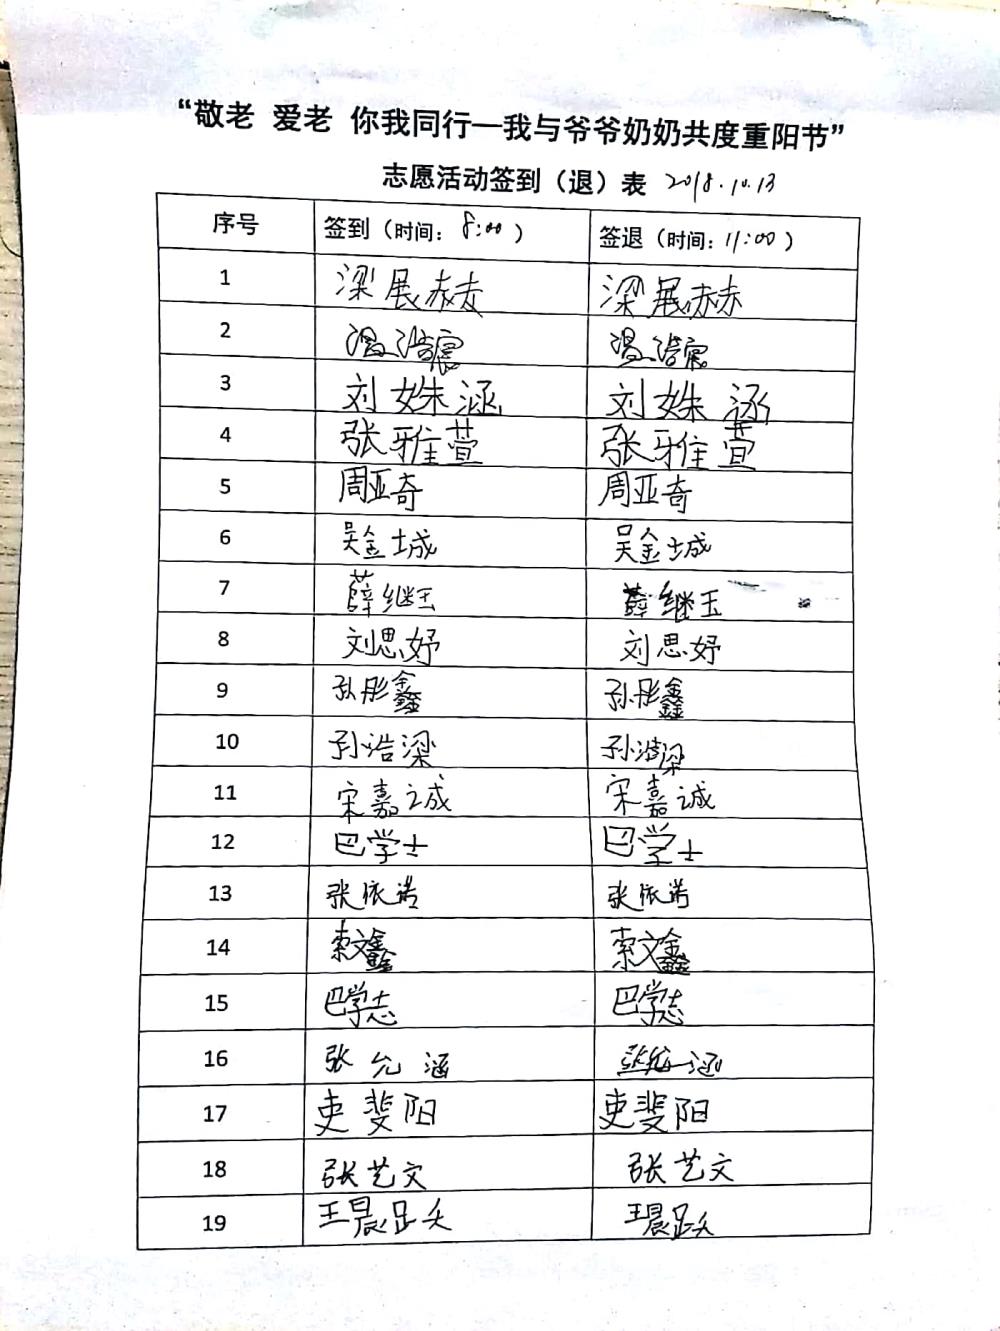 “敬老 爱老 你我同行—我与爷爷奶奶共度重阳节”
志愿活动签到（退）表 2018.10.13
序号 签到（时间：8:00） 签退（时间：11:00）
1 梁展赫 梁展赫
2 温浩宸 温浩宸
3 刘姝涵 刘姝涵
4 张雅萱 张雅萱
5 周亚奇 周亚奇
6 吴金城 吴金城
7 薛继玉 薛继玉
8 刘思妤 刘思妤
9 孙彤鑫 孙彤鑫
10 孙浩梁 孙浩梁
11 宋嘉诚 宋嘉诚
12 巴学士 巴学士
13 张依诺 张依诺
14 索文鑫 索文鑫
15 巴学志 巴学志
16 张允涵 张允涵
17 吏斐阳 吏斐阳
18 张艺文 张艺文
19 王晨跃 王晨跃